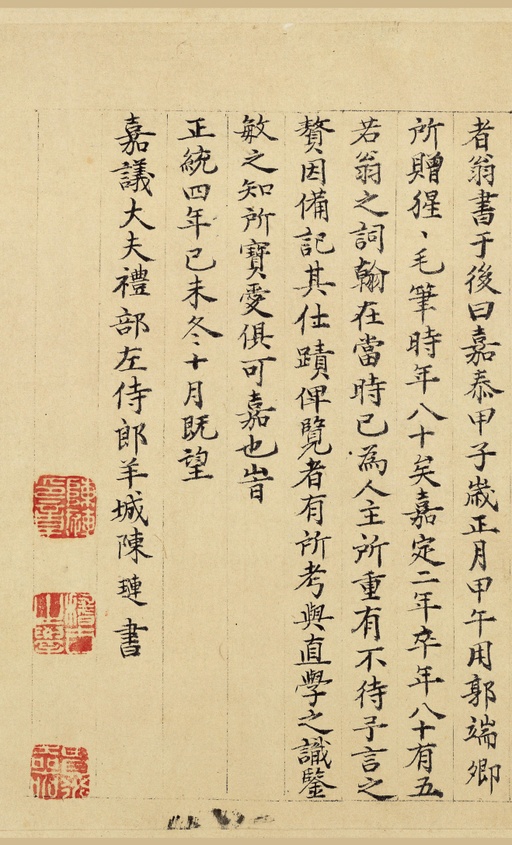 者翁書于後曰嘉泰甲子歲正月甲午用郭端卿
所贈猩〻毛筆時年八十矣嘉定二年卒年八十有五
若翁之詞翰在當時已為人主所重有不待予言之
贅因備記其仕蹟俾覽者有所考與直學之識鑒
敏之知所寶愛俱可嘉也旹
正統四年己未冬十月既望
嘉議大夫禮部左侍郎羊城陳璉書